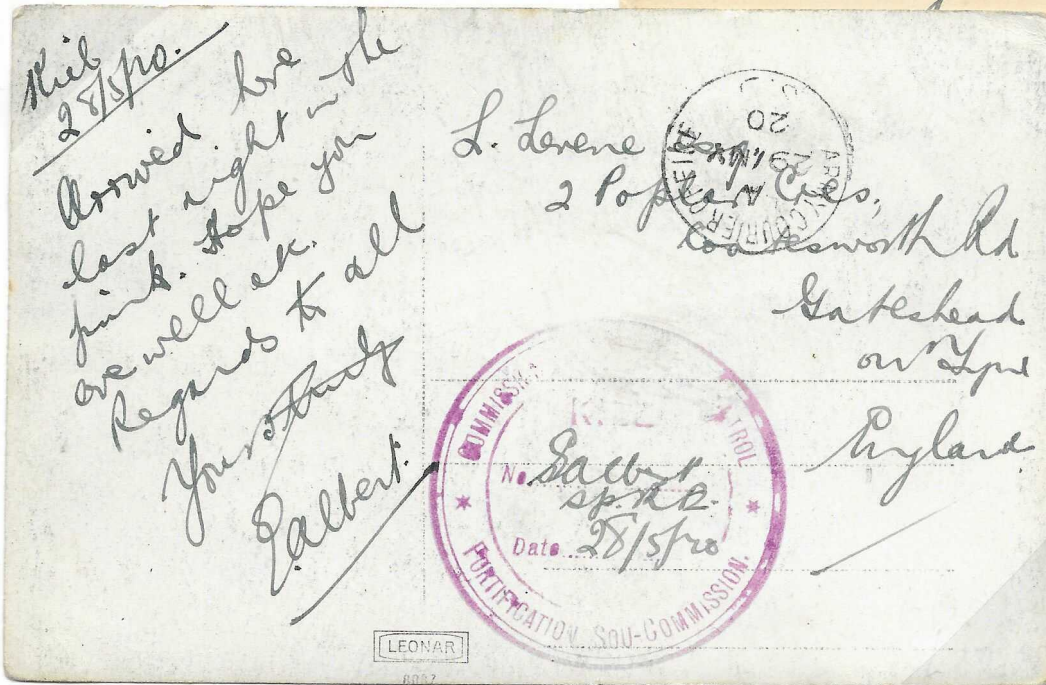 Kiel
28/5/20.
Arrived here
last night in the
pink. Hope you
are well ek.
Regards to all
Yours truly
E. Albert.
L. Levene Esq
2 Poplar Cres.,
Coatesworth Rd
Gateshead
on Tyne
England
ARMY COURIER OFFICE
A
29 MY
20
COMMISSI
TROL
KIEL
No. E Albert
Sp. R.E.
Date 28/5/20
FORTIFICATION SOU-COMMISSION.
LEONAR